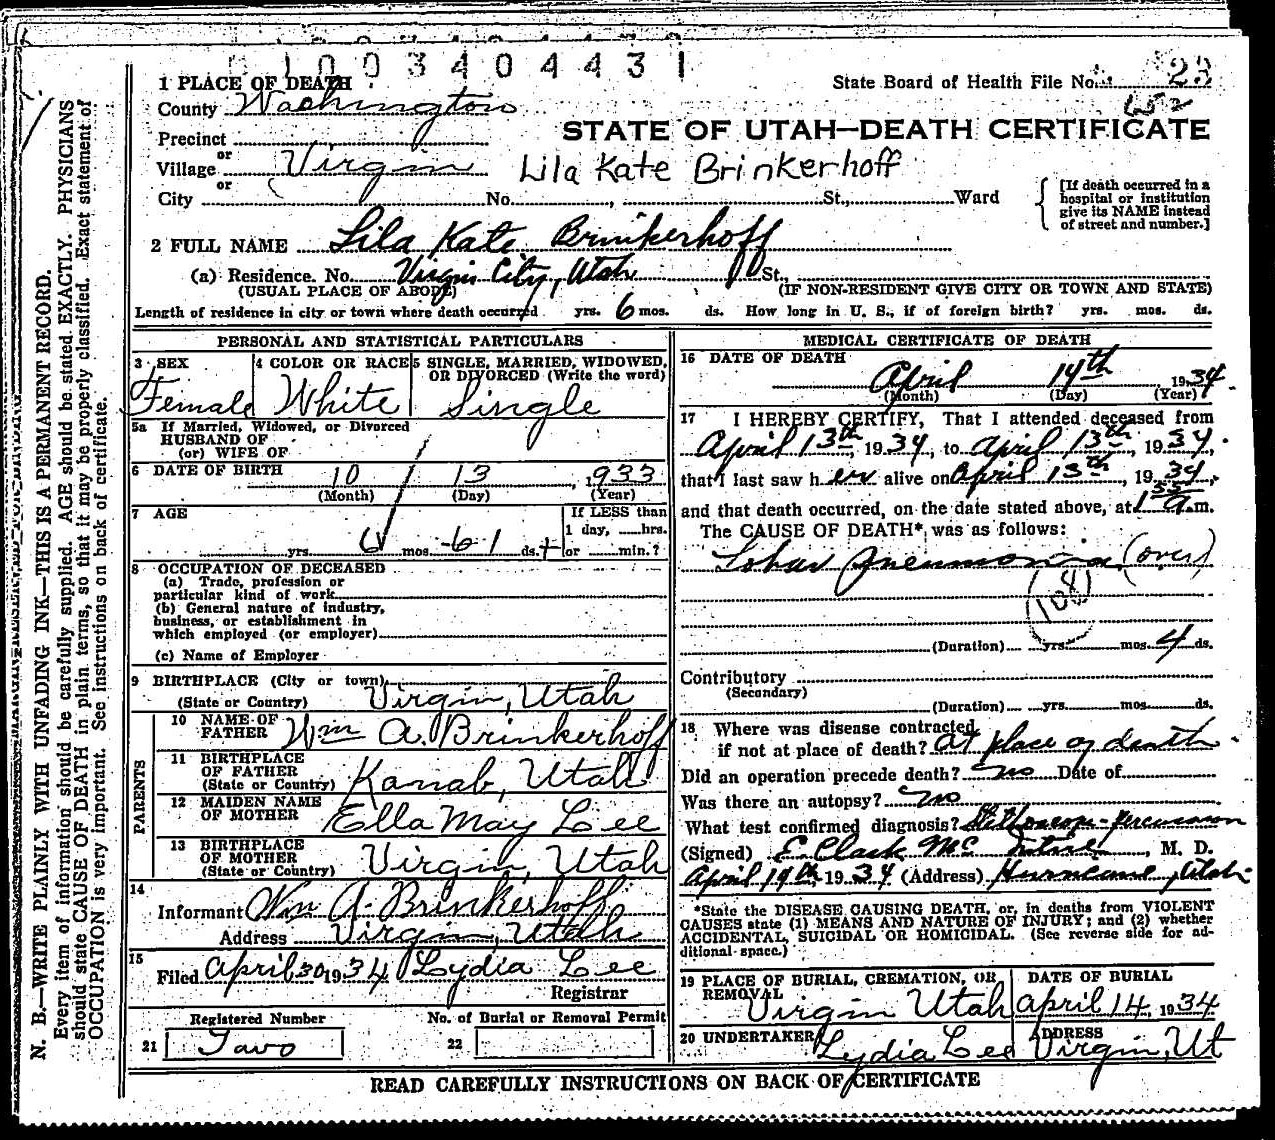 1003404431
1 PLACE OF DEATH
State Board of Health File No. 23
County Washington
652
STATE OF UTAH—DEATH CERTIFICATE
Precinct
or
Village Virgin
Lila Kate Brinkerhoff
or
City No. , St., Ward
[If death occurred in a
hospital or institution
give its NAME instead
of street and number.]
2 FULL NAME Lila Kate Brinkerhoff
(a) Residence. No. Virgin City, Utah St.,
(USUAL PLACE OF ABODE) (IF NON-RESIDENT GIVE CITY OR TOWN AND STATE)
Length of residence in city or town where death occurred yrs. 6 mos. ds. How long in U. S., if of foreign birth? yrs. mos. ds.
PERSONAL AND STATISTICAL PARTICULARS
3 SEX
Female
4 COLOR OR RACE
White
5 SINGLE, MARRIED, WIDOWED,
OR DIVORCED (Write the word)
Single
5a If Married, Widowed, or Divorced
HUSBAND OF
(or) WIFE OF
6 DATE OF BIRTH 10 13 , 1933
(Month) (Day) (Year)
7 AGE
If LESS than
1 day, hrs.
yrs. 6 mos. 1 ds. or min.?
8 OCCUPATION OF DECEASED
(a) Trade, profession or
particular kind of work
(b) General nature of industry,
business, or establishment in
which employed (or employer)
(c) Name of Employer
9 BIRTHPLACE (City or town)
(State or Country) Virgin, Utah
PARENTS
10 NAME OF
FATHER Wm A. Brinkerhoff
11 BIRTHPLACE
OF FATHER
(State or Country) Kanab, Utah
12 MAIDEN NAME
OF MOTHER Ella May Lee
13 BIRTHPLACE
OF MOTHER
(State or Country) Virgin, Utah
14
Informant Wm A. Brinkerhoff
Address Virgin, Utah
15
Filed April 30 1934 Lydia Lee
Registrar
Registered Number No. of Burial or Removal Permit
21 Two 22
MEDICAL CERTIFICATE OF DEATH
16 DATE OF DEATH
April 14th 1934.
(Month) (Day) (Year)
17 I HEREBY CERTIFY, That I attended deceased from
April 13th, 1934, to April 13th, 1934,
that I last saw her alive on April 13th, 1934,
and that death occurred, on the date stated above, at 1 55 a.m.
The CAUSE OF DEATH*, was as follows:
Lobar pneumonia (over)
(108)
(Duration) yrs. mos. 4 ds.
Contributory
(Secondary)
(Duration) yrs. mos. ds.
18 Where was disease contracted
if not at place of death? At place of death.
Did an operation precede death? no Date of
Was there an autopsy? no
What test confirmed diagnosis? Stethoscope-percussion
(Signed) E. Clark McIntire, M. D.
April 19th, 1934 (Address) Hurricane, Utah
*State the DISEASE CAUSING DEATH, or, in deaths from VIOLENT
CAUSES state (1) MEANS AND NATURE OF INJURY; and (2) whether
ACCIDENTAL, SUICIDAL OR HOMICIDAL. (See reverse side for ad-
ditional space.)
19 PLACE OF BURIAL, CREMATION, OR
REMOVAL
Virgin Utah
DATE OF BURIAL
April 14, 1934
20 UNDERTAKER
Lydia Lee
ADDRESS
Virgin, Ut
READ CAREFULLY INSTRUCTIONS ON BACK OF CERTIFICATE
N. B.—WRITE PLAINLY WITH UNFADING INK—THIS IS A PERMANENT RECORD.
Every item of information should be carefully supplied. AGE should be stated EXACTLY. PHYSICIANS
should state CAUSE OF DEATH in plain terms, so that it may be properly classified. Exact statement of
OCCUPATION is very important. See instructions on back of certificate.